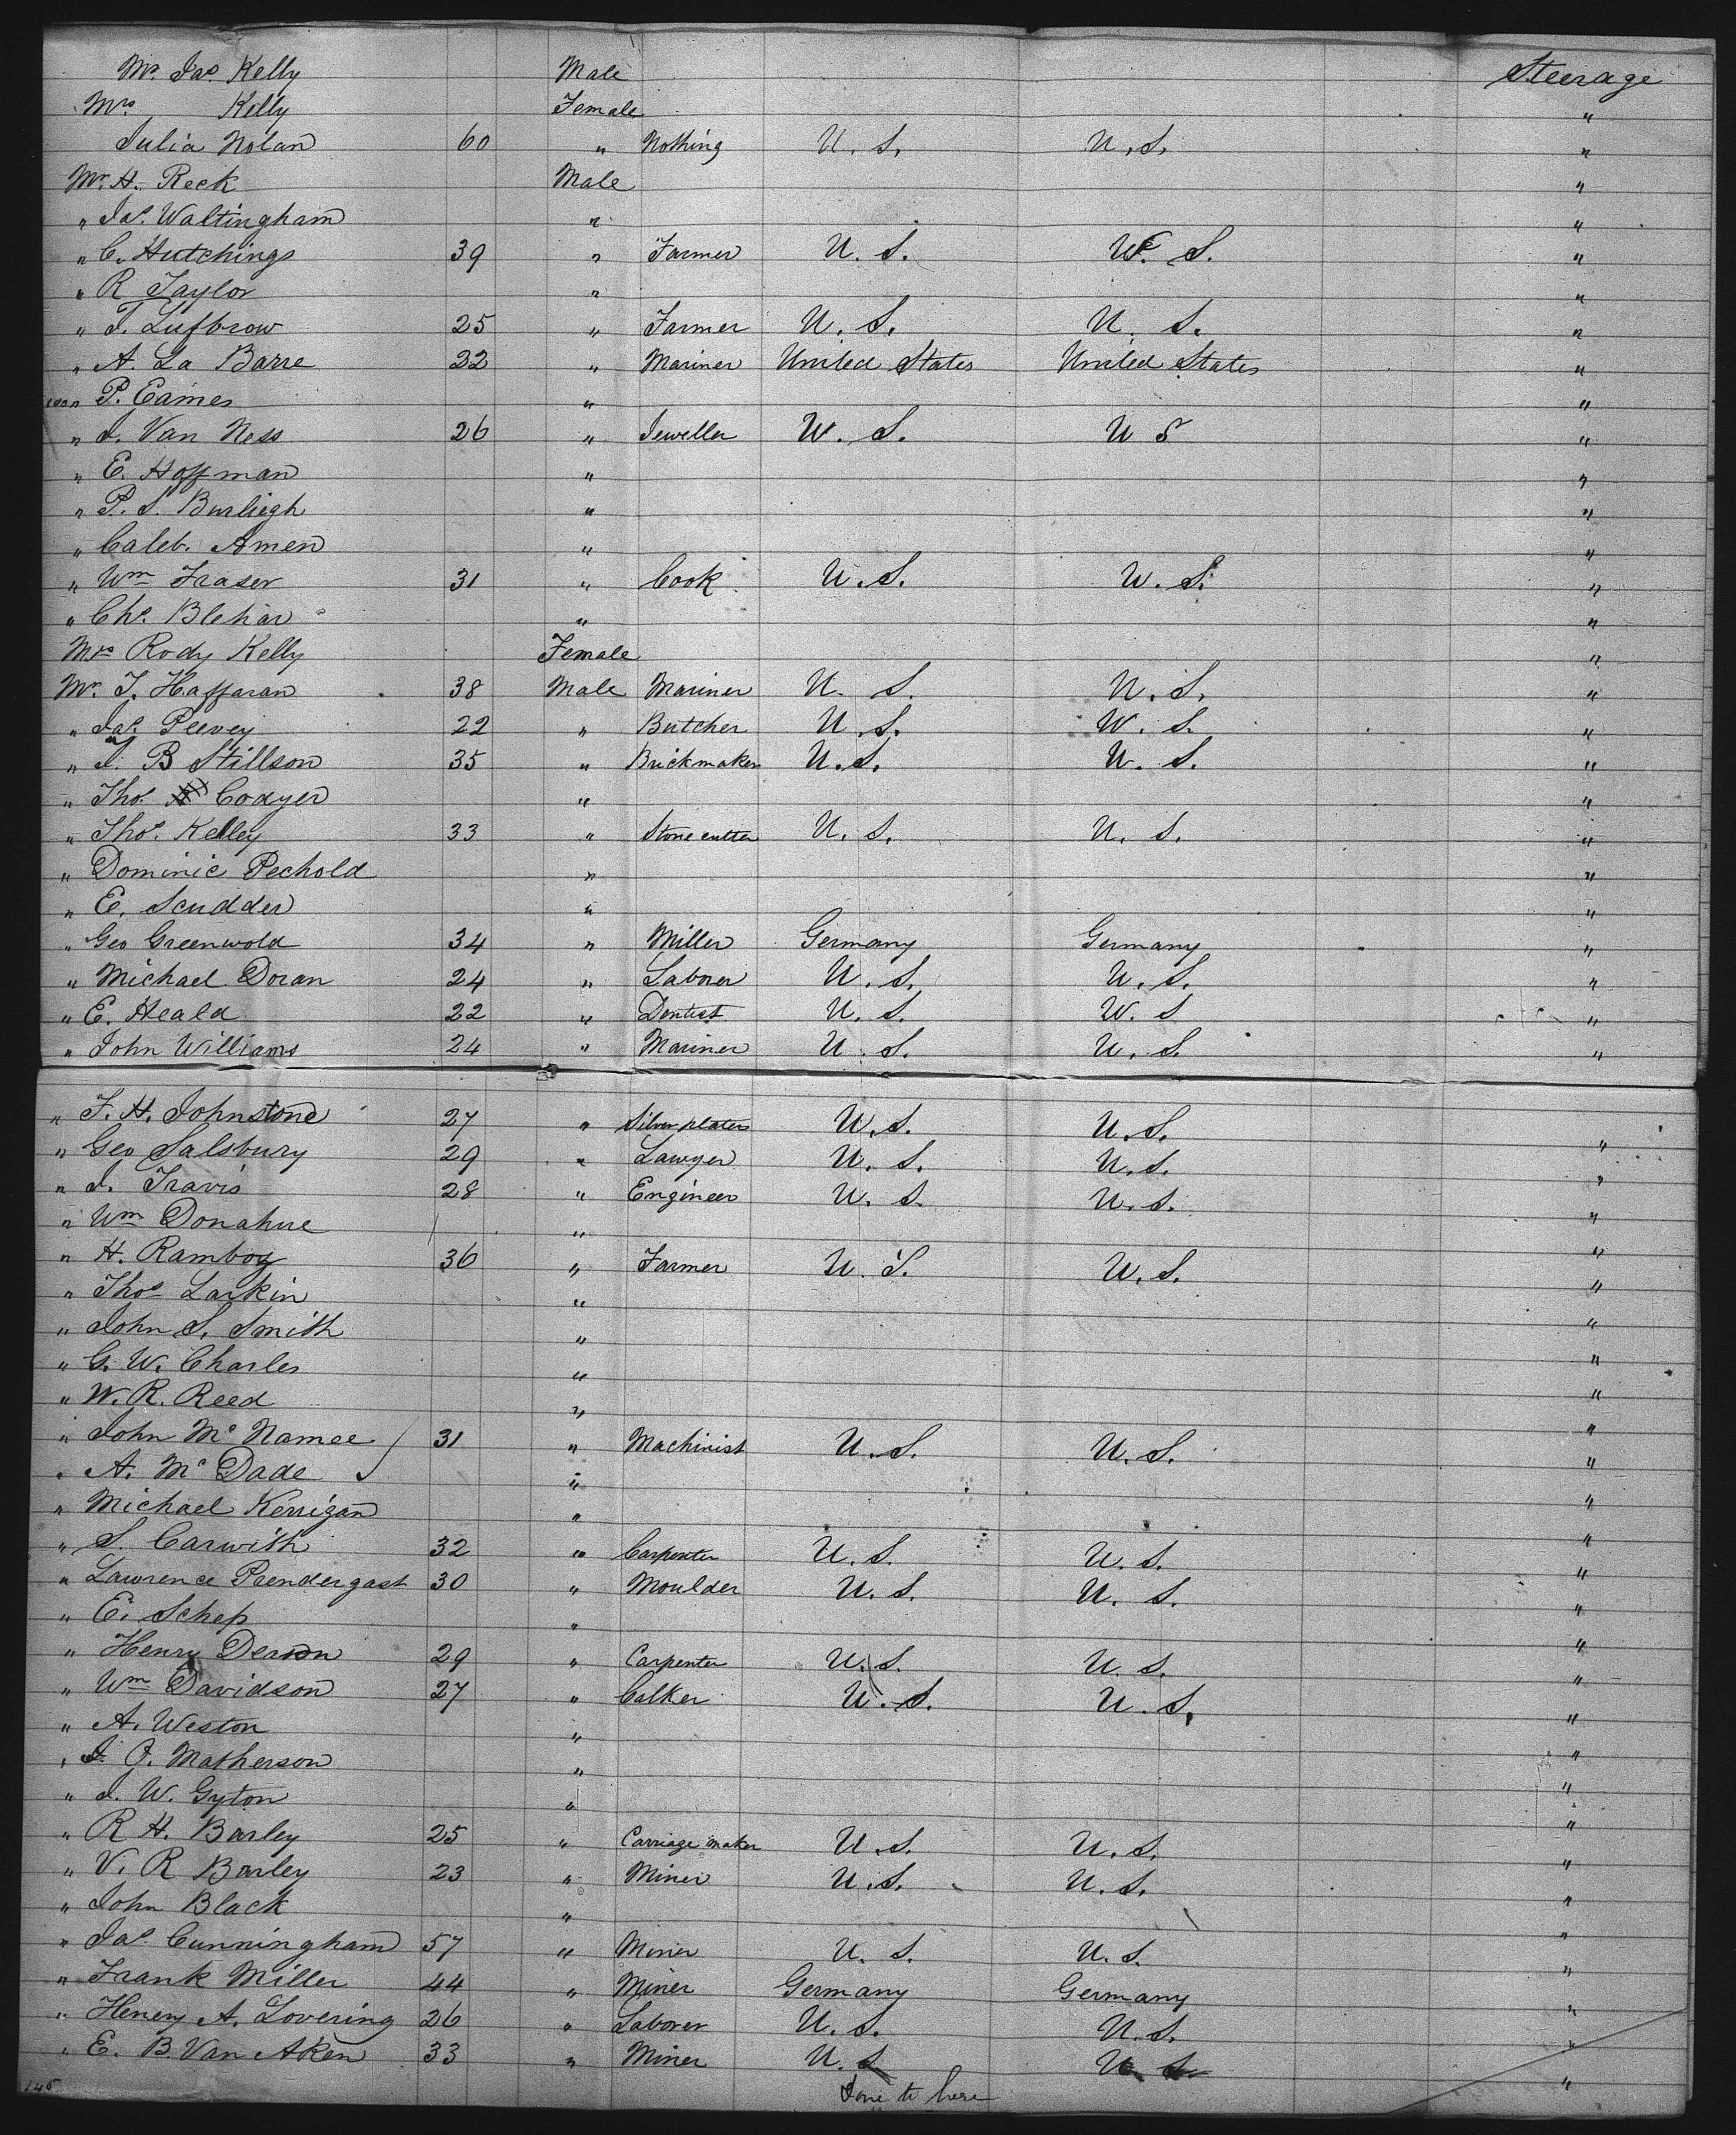 Mr. Jas. Kelly Male Steerage
Mrs Kelly Female "
Julia Nolan 60 " Nothing U. S. U. S. "
Mr. H. Reck Male "
" Jas. Waltingham " "
" C. Hutchings 39 " Farmer U. S. U. S. "
" R Taylor " "
" T. Lufbrow 25 " Farmer U. S. U. S. "
" A. La Barre 22 " Mariner United States United States "
" P. Eames " "
" J. Van Ness 26 " Jeweller U. S. U S "
" E. Hoffman " "
" P. S. Burliegh " "
" Caleb. Amen " "
" Wm Fraser 31 " Cook U. S. U. S. "
" Chs. Blehar " "
Mrs Rody Kelly Female "
Mr. T. Haffaran 38 Male Mariner U. S. U. S. "
" Jas. Peevey 22 " Butcher U. S. U. S. "
" J. B Stillson 35 " Brickmaker U. S. U. S. "
" Thos. Codyer " "
" Thos. Kelley 33 " Stone cutter U. S. U. S. "
" Dominic Pechold " "
" E. Scudder " "
" Geo Greenwold 34 " Miller Germany Germany "
" Michael Doran 24 " Laborer U. S. U. S. "
" E. Heald 22 " Dentist U. S. U. S "
" John Williams 24 " Mariner U. S. U. S. "
" F. H. Johnstone 27 " Silver plater U. S. U. S. "
" Geo Salsbury 29 " Lawyer U. S. U. S. "
" J. Travis 28 " Engineer U. S. U. S. "
" Wm Donahue " "
" H. Ramboy 36 " Farmer U. S. U. S. "
" Thos Larkin " "
" John S. Smith " "
" G. W. Charles " "
" W. R. Reed " "
" John Mc Namee 31 " Machinist U. S. U. S. "
" A. Mc Dade " "
" Michael Kerrigan " "
" S. Carwith 32 " Carpenter U. S. U. S. "
" Lawrence Prendergast 30 " Moulder U. S. U. S. "
" E. Schep " "
" Henry Deason 29 " Carpenter U. S. U. S. "
" Wm Davidson 27 " Calker U. S. U. S. "
" A. Weston " "
" J. O. Matherson " "
" J. W. Gyton " "
" R H. Barley 25 " Carriage maker U. S. U. S. "
" V. R Barley 23 " Miner U. S. U. S. "
" John Black " "
" Jas. Cunningham 57 " Miner U. S. U. S. "
" Frank Miller 44 " Miner Germany Germany "
" Henery A. Lovering 26 " Laborer U. S. U. S. "
" E. B. Van Aken 33 " Miner U. S. U. S. "
145 Done to here